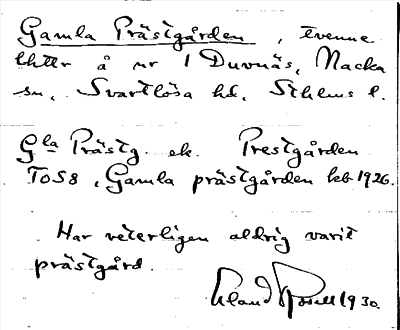 Gamla Prästgården, tvenne
lhter å nr 1 Duvnäs, Nacka
sn, Svartlösa hd, Sthlms l.
Gla Prästg. ek. Prestgården
TOS8, Gamla prästgården heb 1926.
Har veterligen aldrig varit
prästgård.
Erland 1930.